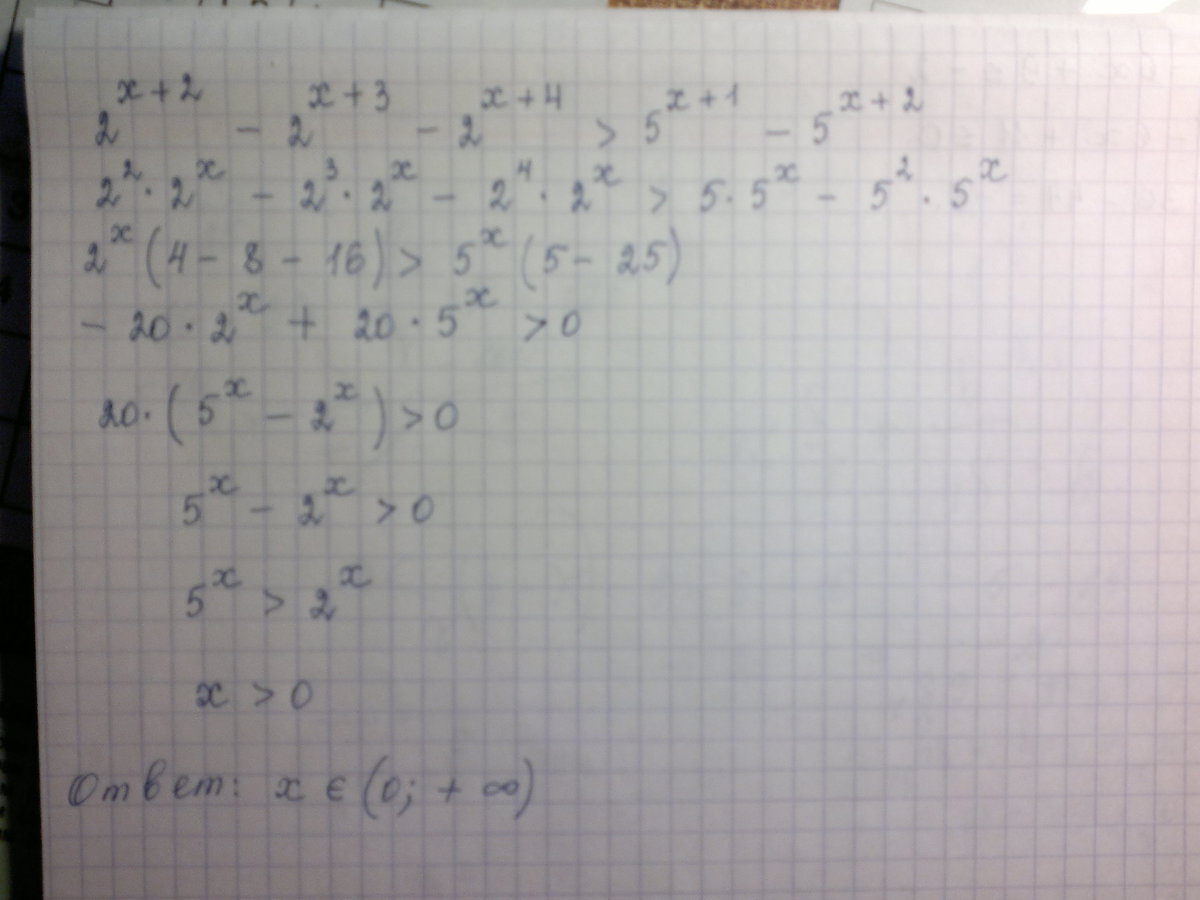 2^{x+2} - 2^{x+3} - 2^{x+4} > 5^{x+1} - 5^{x+2}
2^2 · 2^x - 2^3 · 2^x - 2^4 · 2^x > 5 · 5^x - 5^2 · 5^x
2^x (4 - 8 - 16) > 5^x (5 - 25)
- 20 · 2^x + 20 · 5^x > 0
20 · (5^x - 2^x) > 0
5^x - 2^x > 0
5^x > 2^x
x > 0
Ответ: x ∈ (0; + ∞)